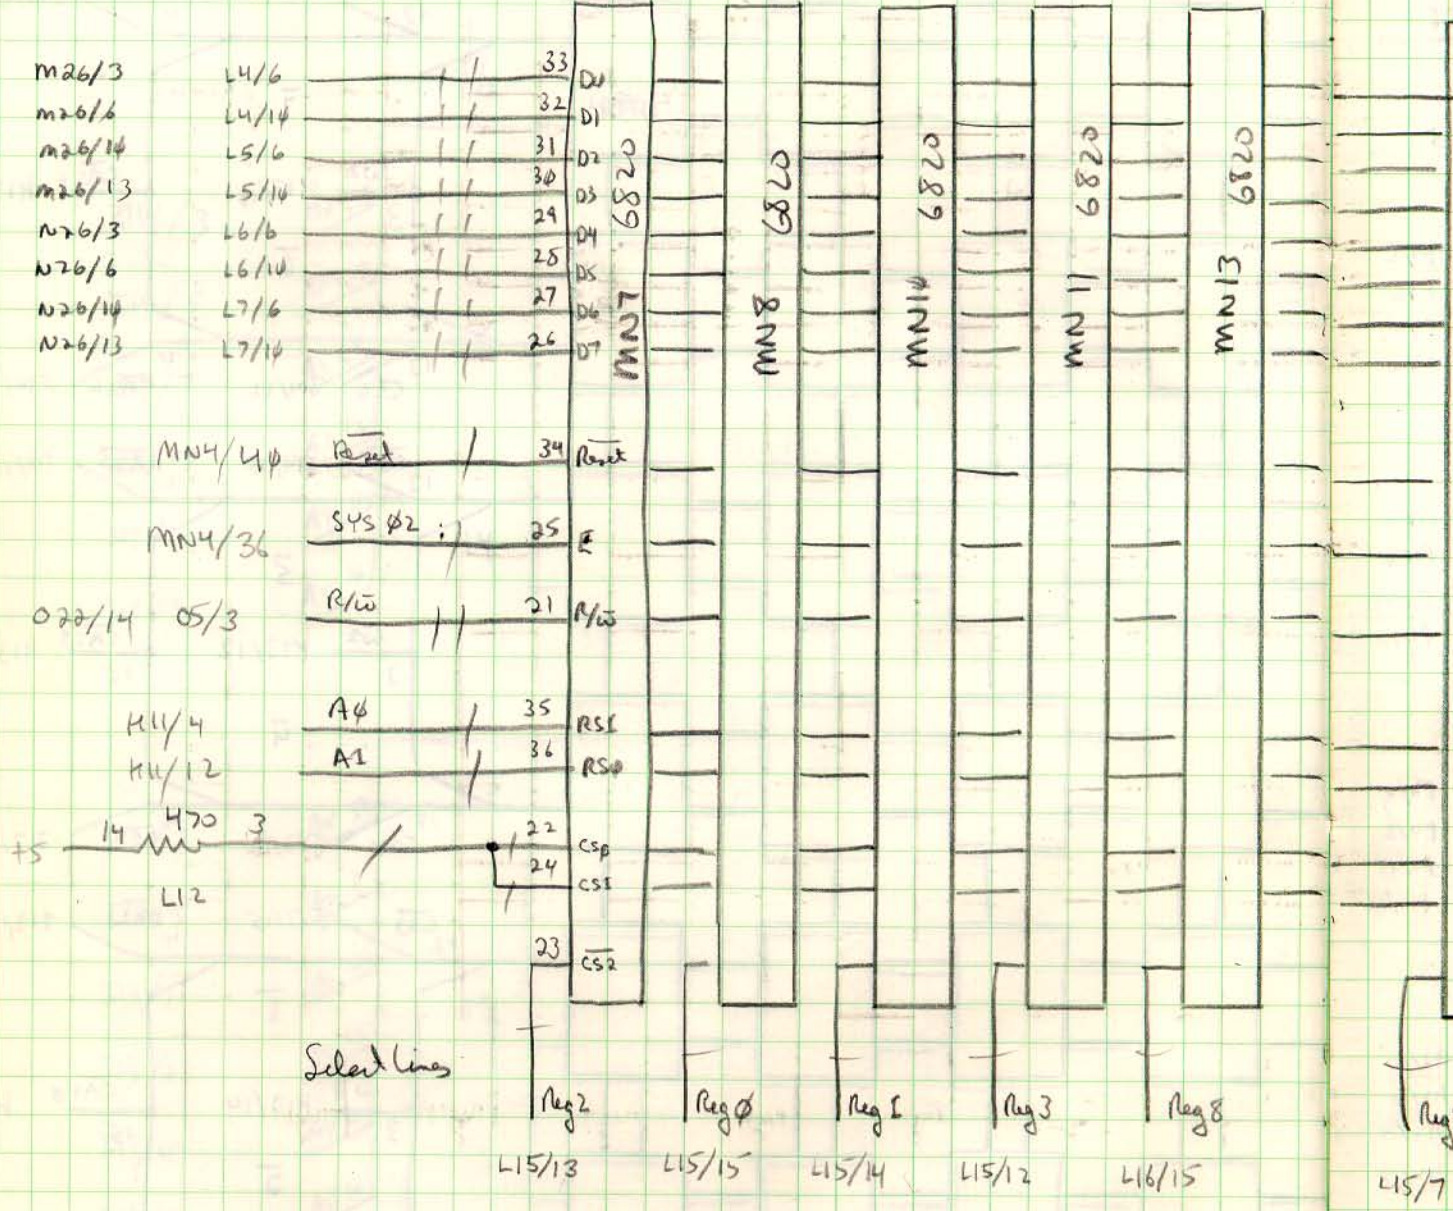 M26/3 L4/6 33 D0
M26/6 L4/10 32 D1
M26/10 L5/6 31 D2
M26/13 L5/10 30 D3
N26/3 L6/6 29 D4
N26/6 L6/10 28 D5
N26/10 L7/6 27 D6
N26/13 L7/10 26 D7
6820 MN7
6820 MN8
6820 MN10
6820 MN11
6820 MN13
MN4/40 Reset 34 Reset
MN4/36 SYS Ø2 : 25 E
O22/14 O5/3 R/W 21 R/W
H11/4 AØ 35 RS1
H11/12 A1 36 RSØ
+5 14 470 3 22 CSØ
24 CS1
L12
23 CS2
Select Lines
Reg2 RegØ Reg1 Reg3 Reg8 Reg
L15/13 L15/15 L15/14 L15/12 L16/15 L15/7